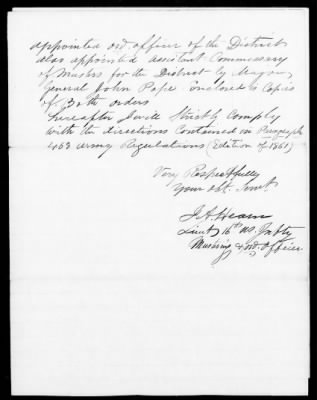 appointed ord. officer of the District
also appointed Assistant Commissary
of Musters for the District by Major
General John Pope enclosed Copies
of Both orders
hereafter I will Strictly Comply
with the directions Contained in Paragraph
463 Army Regulations (Edition of 1861)
Very Respectfully
Your obt. Servt
J. A. Hearn
Lieut 16th U.S. Infty
Mustering & Ord. Officer